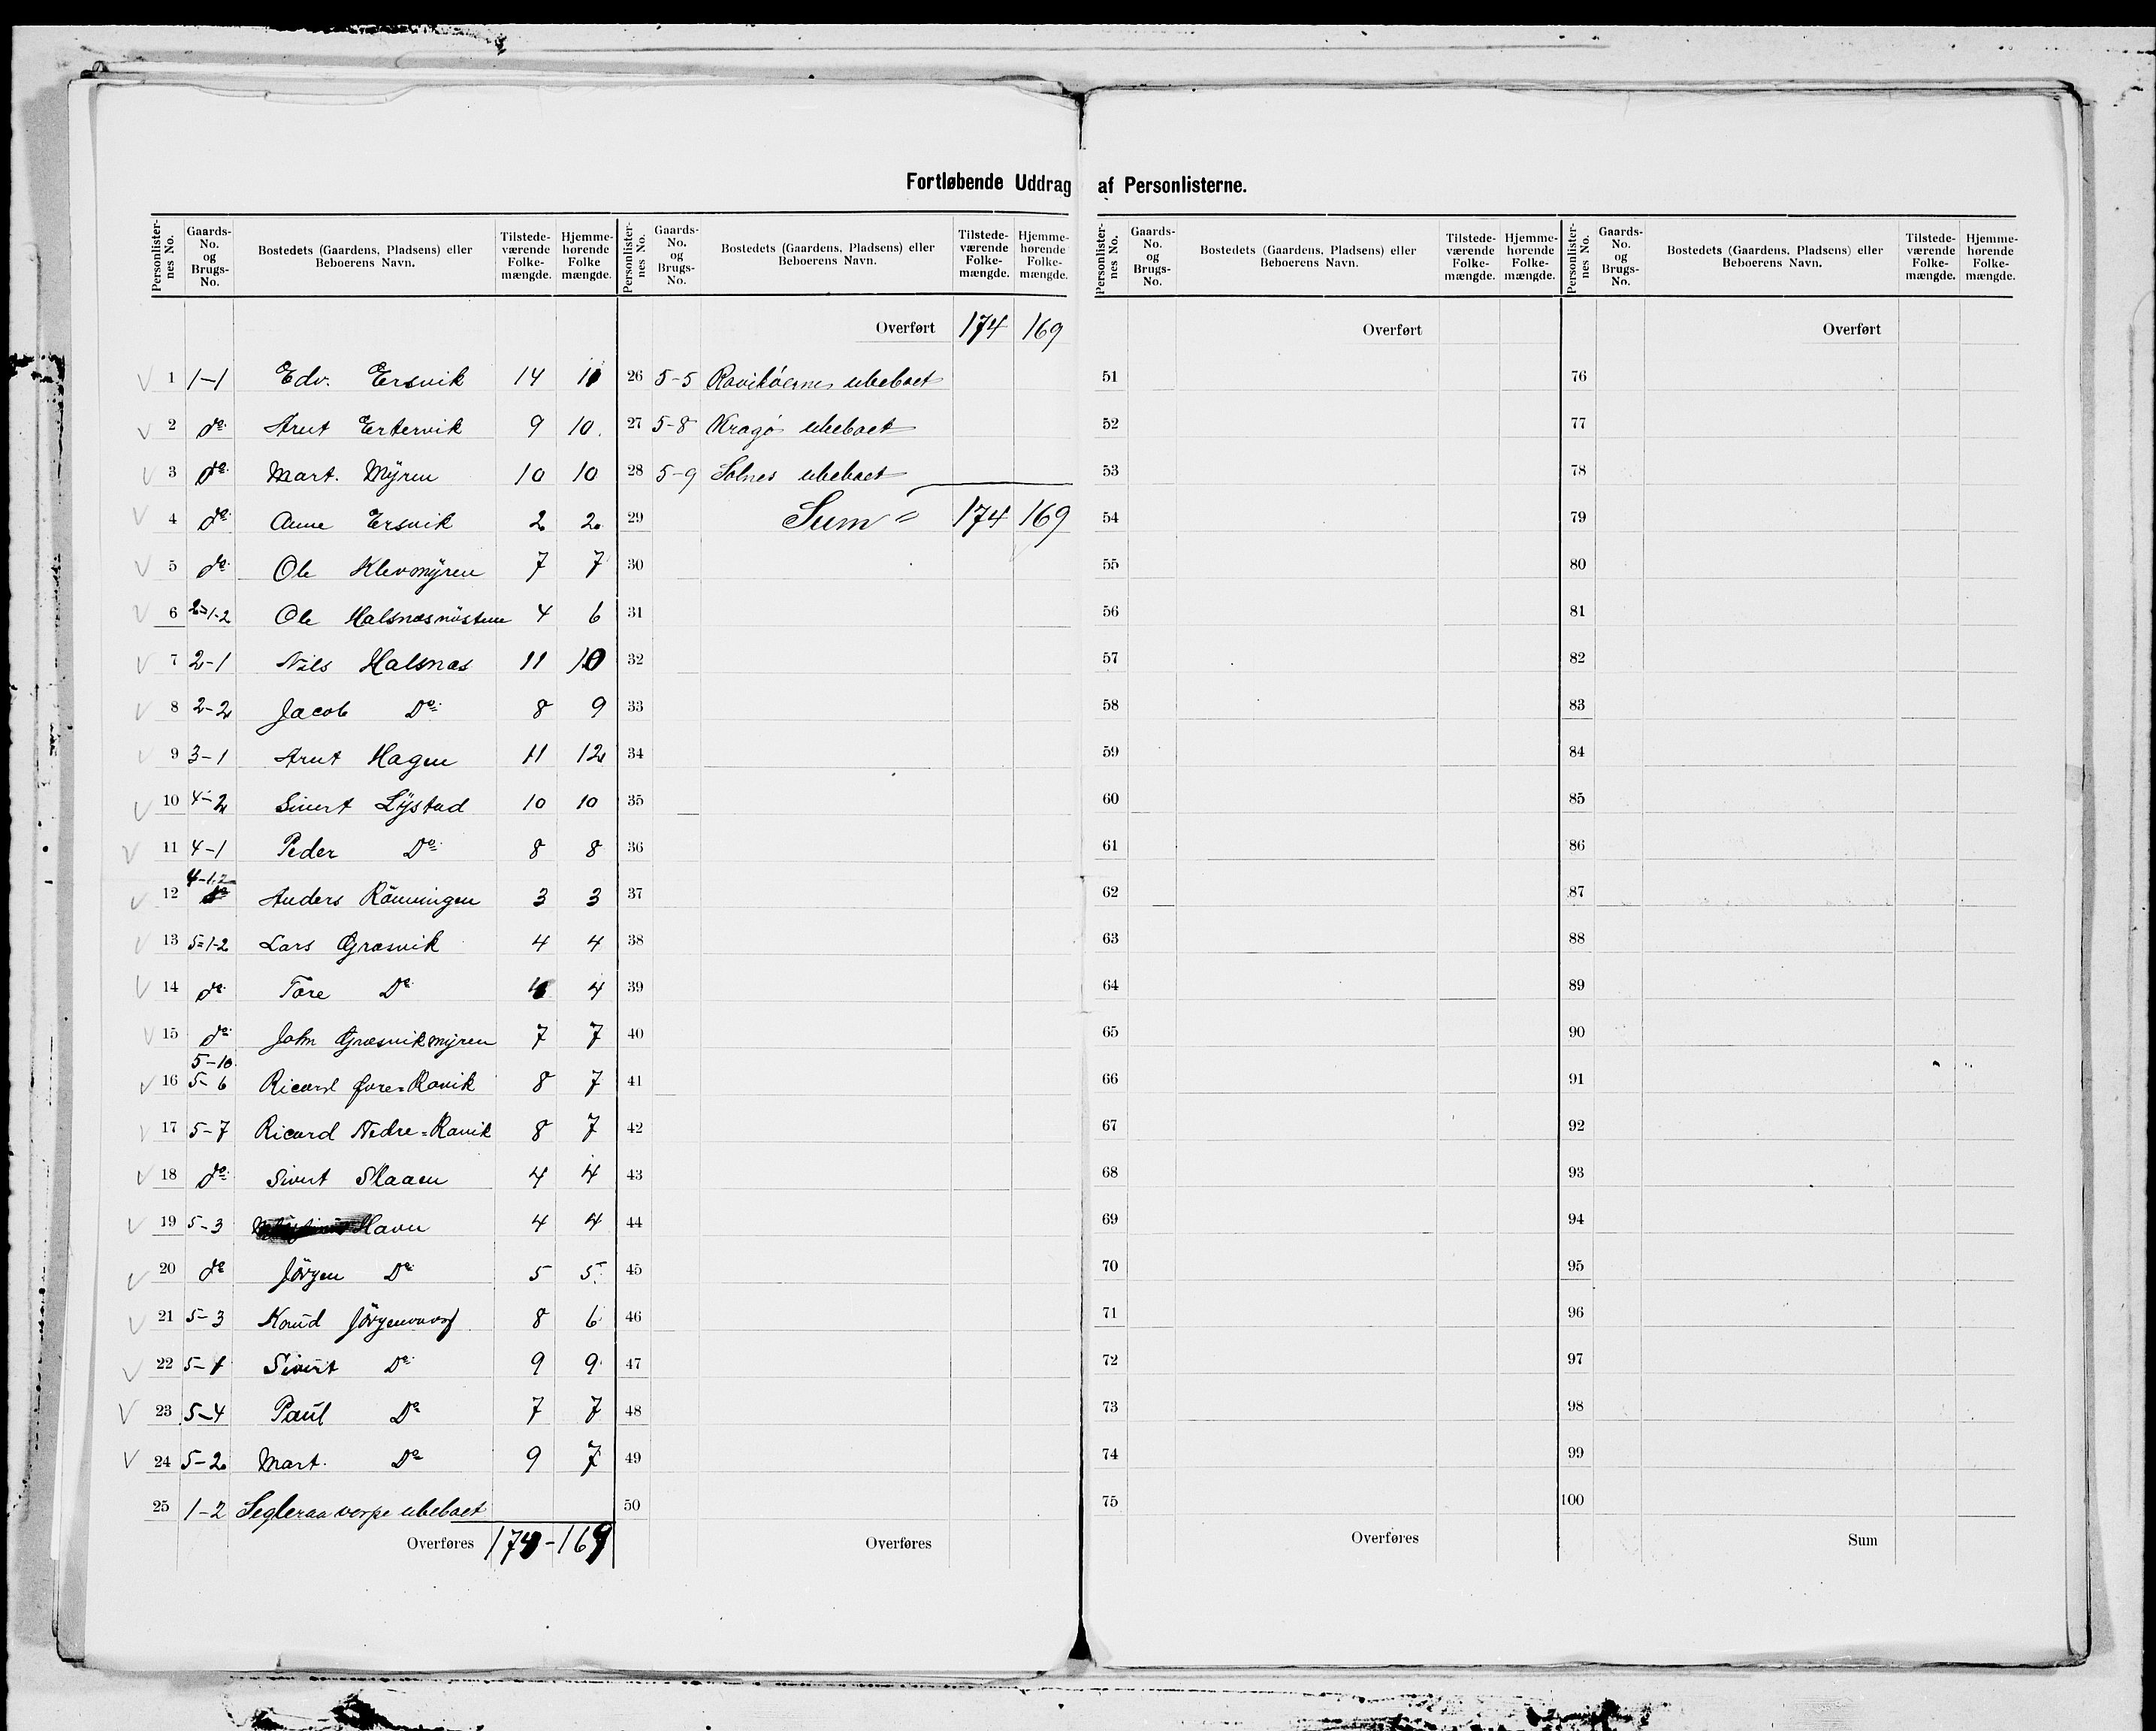 Fortløbende Uddrag af Personlisterne.
Personlister-nes No. Gaards-No. og Brugs-No. Bostedets (Gaardens, Pladsens) eller Beboerens Navn. Tilstede-værende Folke-mængde. Hjemme-hørende Folke mængde.
1 1-1 Edv. Ersvik 14 10
2 do Arnt Ertervik 9 10.
3 do Mart. Mÿren 10 10
4 do Anne Ersvik 2 2
5 do Ole Klevmÿren 7 7
6 2=1-2 Ole Halsnæsnöstene 4 6
7 2-1 Nils Halsnæs 11 10
8 2-2 Jacob Do 8 9
9 3-1 Arnt Hagen 11 12
10 4-2 Sivert Lÿstad 10 10
11 4-1 Peder Do 8 8
12 4-1,2 Anders Rönningen 3 3
13 5=1-2 Lars Græsvik 4 4
14 do Tore Do 4 4
15 do John Græsvikmÿren 7 7
5-10
16 5-6 Ricard Øvre=Ravik 8 7
17 5-7 Ricard Nedre=Ravik 8 7
18 do Sivert Skaaen 4 4
19 5-3 Havn 4 4
20 do Jörgen Do 5 5
21 5-3 Knud 8 6
22 5-1 Sivert Do 9 9
23 5-4 Paul Do 7 7
24 5-2 Mart. Do 9 7
25 1-2 ubeboet
Overføres 174-169
Personlister-nes No. Gaards-No. og Brugs-No. Bostedets (Gaardens, Pladsens) eller Beboerens Navn. Tilstede-værende Folke-mængde. Hjemme-hørende Folke-mængde.
Overført 174 169
26 5-5 ubeboet
27 5-8 Kragö ubeboet
28 5-9 Solnes ubeboet
29 Sum = 174 169
30
31
32
33
34
35
36
37
38
39
40
41
42
43
44
45
46
47
48
49
50
Overføres
Personlister-nes No. Gaards-No. og Brugs-No. Bostedets (Gaardens, Pladsens) eller Beboerens Navn. Tilstede-værende Folke-mængde. Hjemme-hørende Folke-mængde.
Overført
51
52
53
54
55
56
57
58
59
60
61
62
63
64
65
66
67
68
69
70
71
72
73
74
75
Overføres
Personlister-nes No. Gaards-No. og Brugs-No. Bostedets (Gaardens, Pladsens) eller Beboerens Navn. Tilstede-værende Folke-mængde. Hjemme-hørende Folke-mængde.
Overført
76
77
78
79
80
81
82
83
84
85
86
87
88
89
90
91
92
93
94
95
96
97
98
99
100
Sum